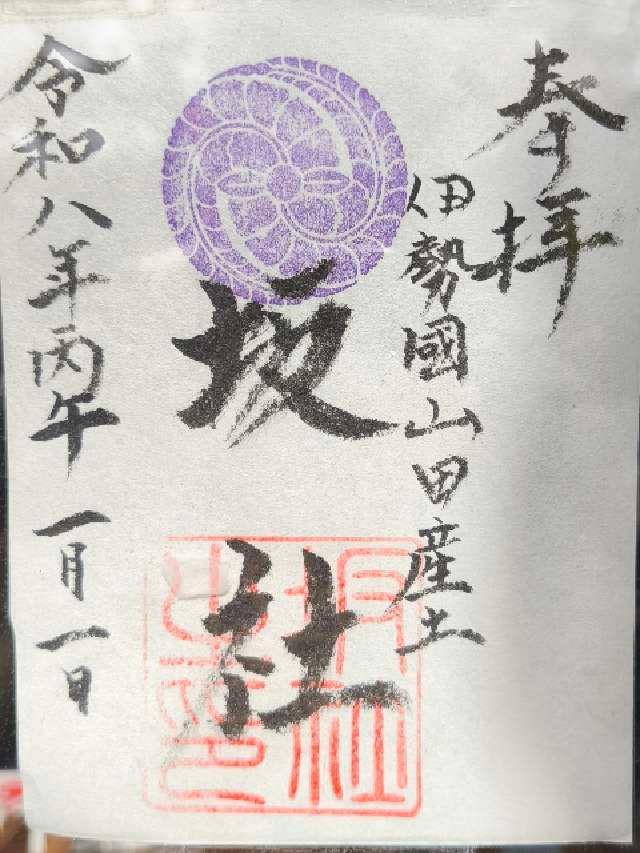 奉拝
伊勢國山田産土
坂社
坂社之印
令和八年丙午 一月一日